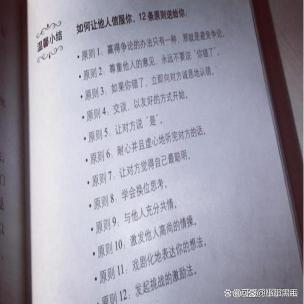 温馨小结
如何让他人信服你，12条原则送给你。
·原则1．赢得争论的办法只有一种，那就是避免争论。
·原则2．尊重他人的意见，永远不要说“你错了”。
·原则3．如果你错了，立即向对方诚恳地认错。
·原则4．交谈，以友好的方式开始。
·原则5．让对方说“是”。
·原则6．耐心并且虚心地听完对方的话。
·原则7．让对方觉得自己最聪明。
·原则8．学会换位思考。
·原则9．与他人充分共情。
·原则10．激发他人高尚的情操。
·原则11．戏剧化地表达你的想法。
·原则12．发起挑战的激励法。